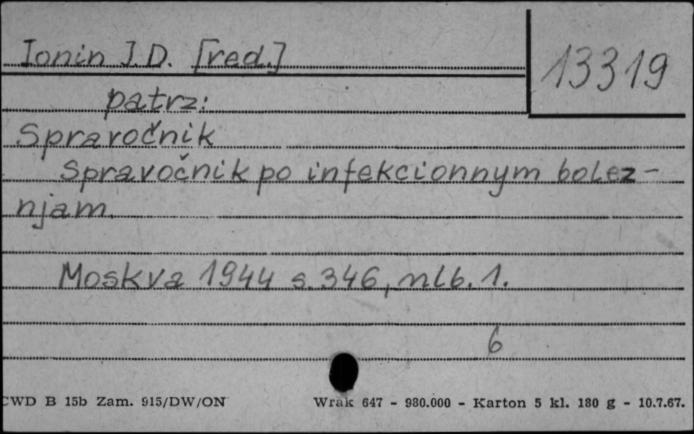 Ionin J.D. [red.]
13319
patrz:
Spravočnik
Spravočnik po infekcionnym bolez-
njam.
Moskva 1944 s. 346, nlb. 1.
6
CWD B 15b Zam. 915/DW/ON Wrak 647 - 980.000 - Karton 5 kl. 180 g - 10.7.67.